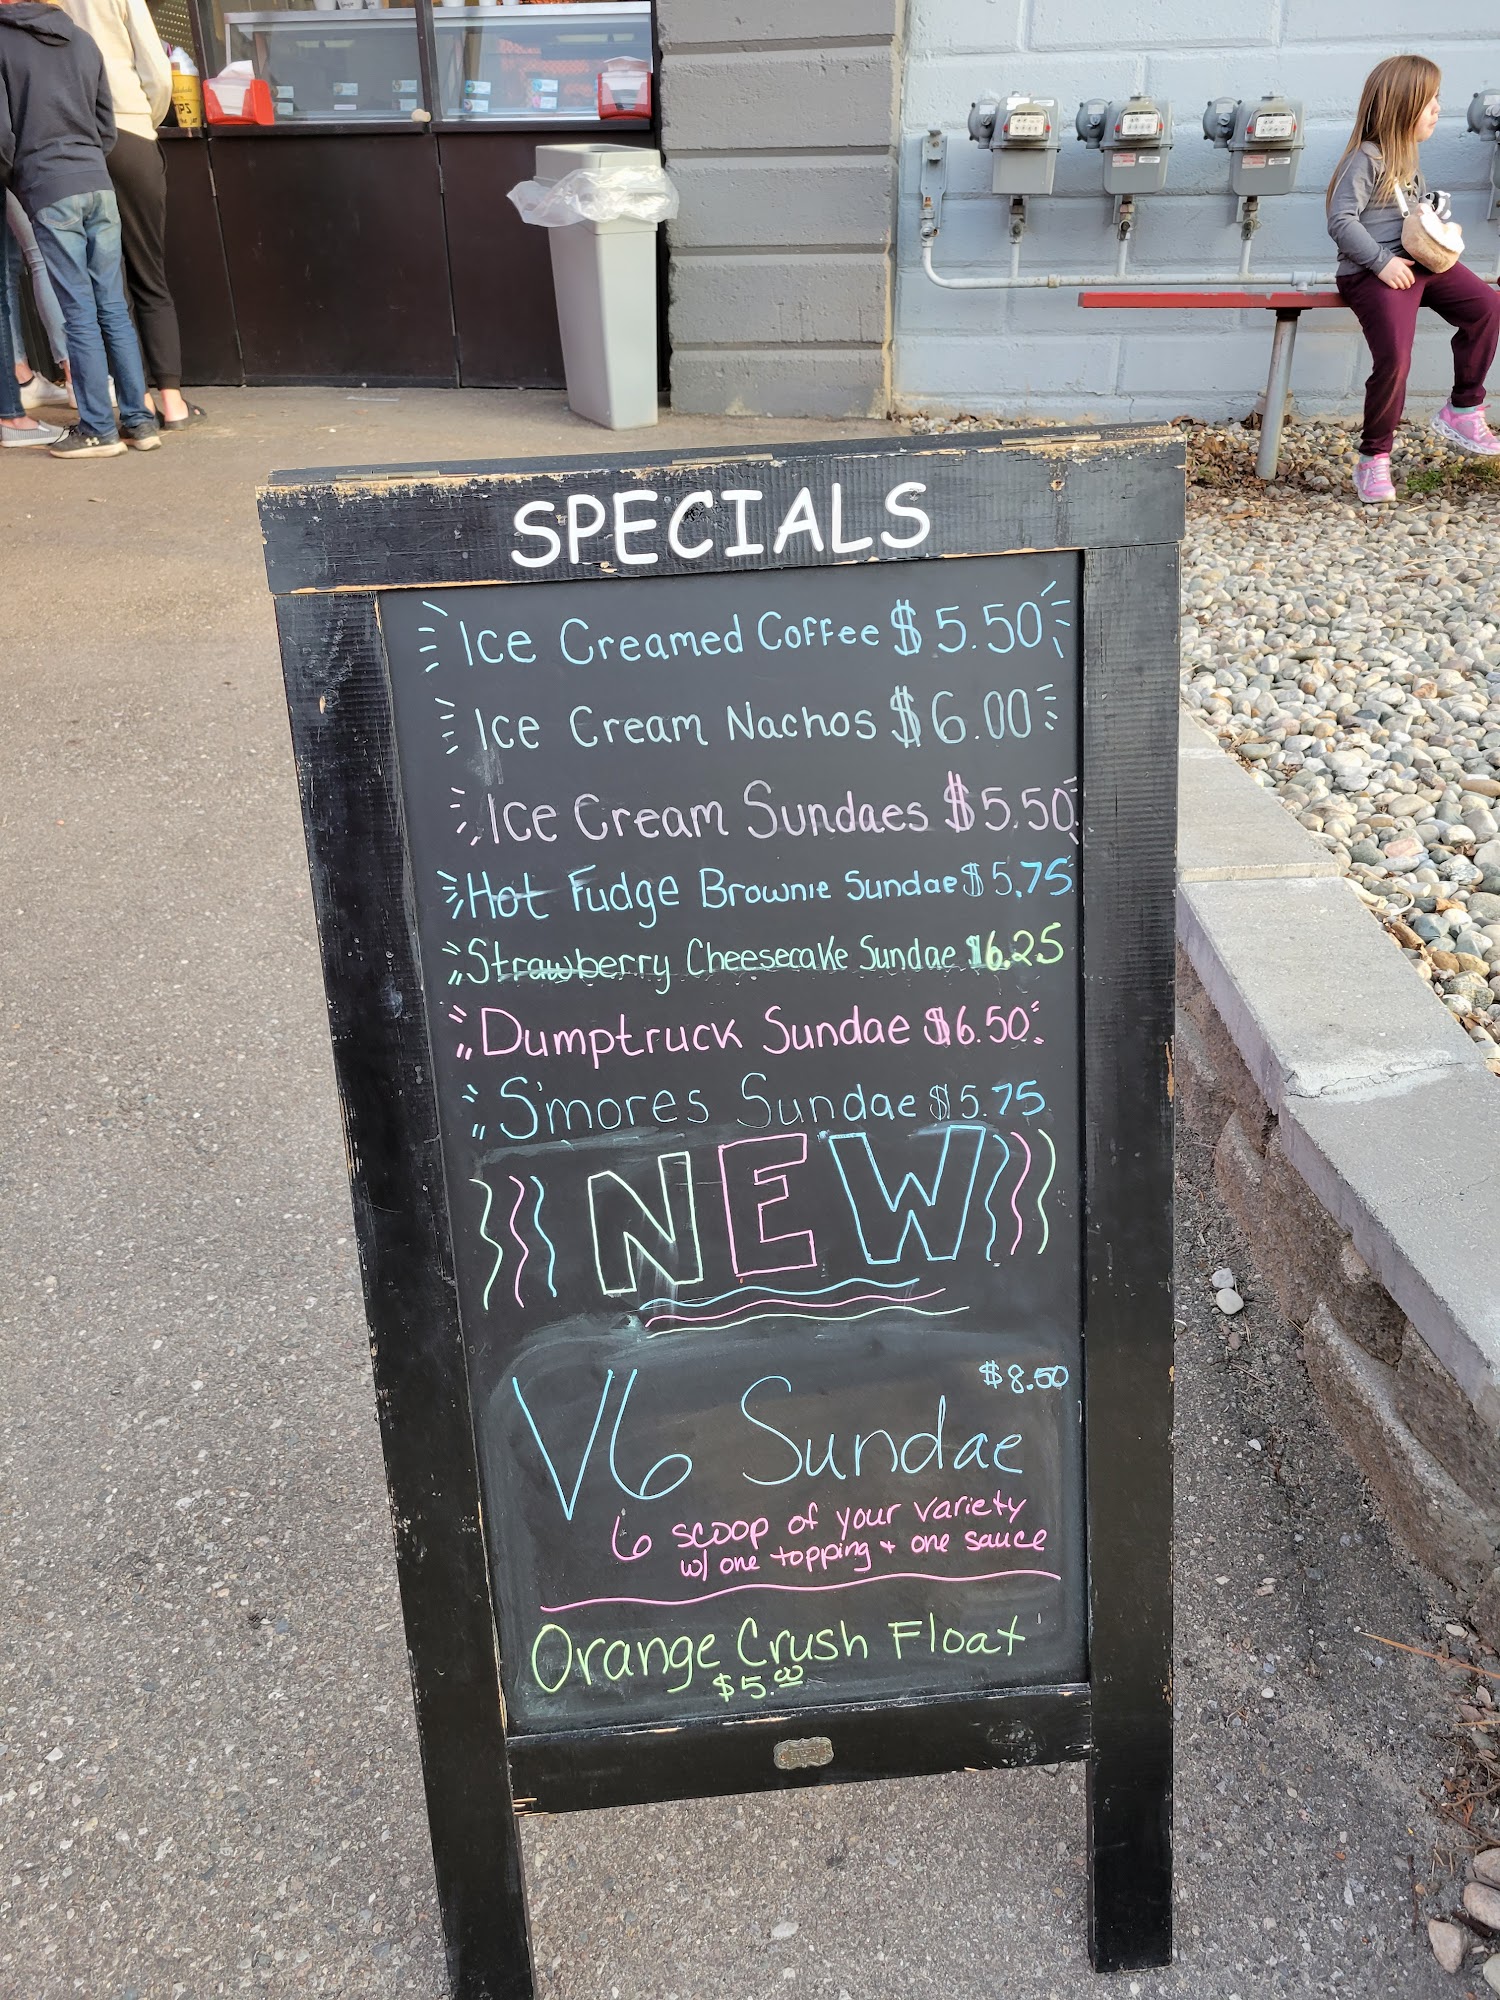 SPECIALS
Ice Creamed Coffee $5.50
Ice Cream Nachos $6.00
Ice Cream Sundaes $5.50
Hot Fudge Brownie Sundae $5.75
Strawberry Cheesecake Sundae $6.25
Dumptruck Sundae $6.50
S'mores Sundae $5.75
NEW
$8.50
V6 Sundae
6 scoop of your variety
w/ one topping + one sauce
Orange Crush Float
$5.00